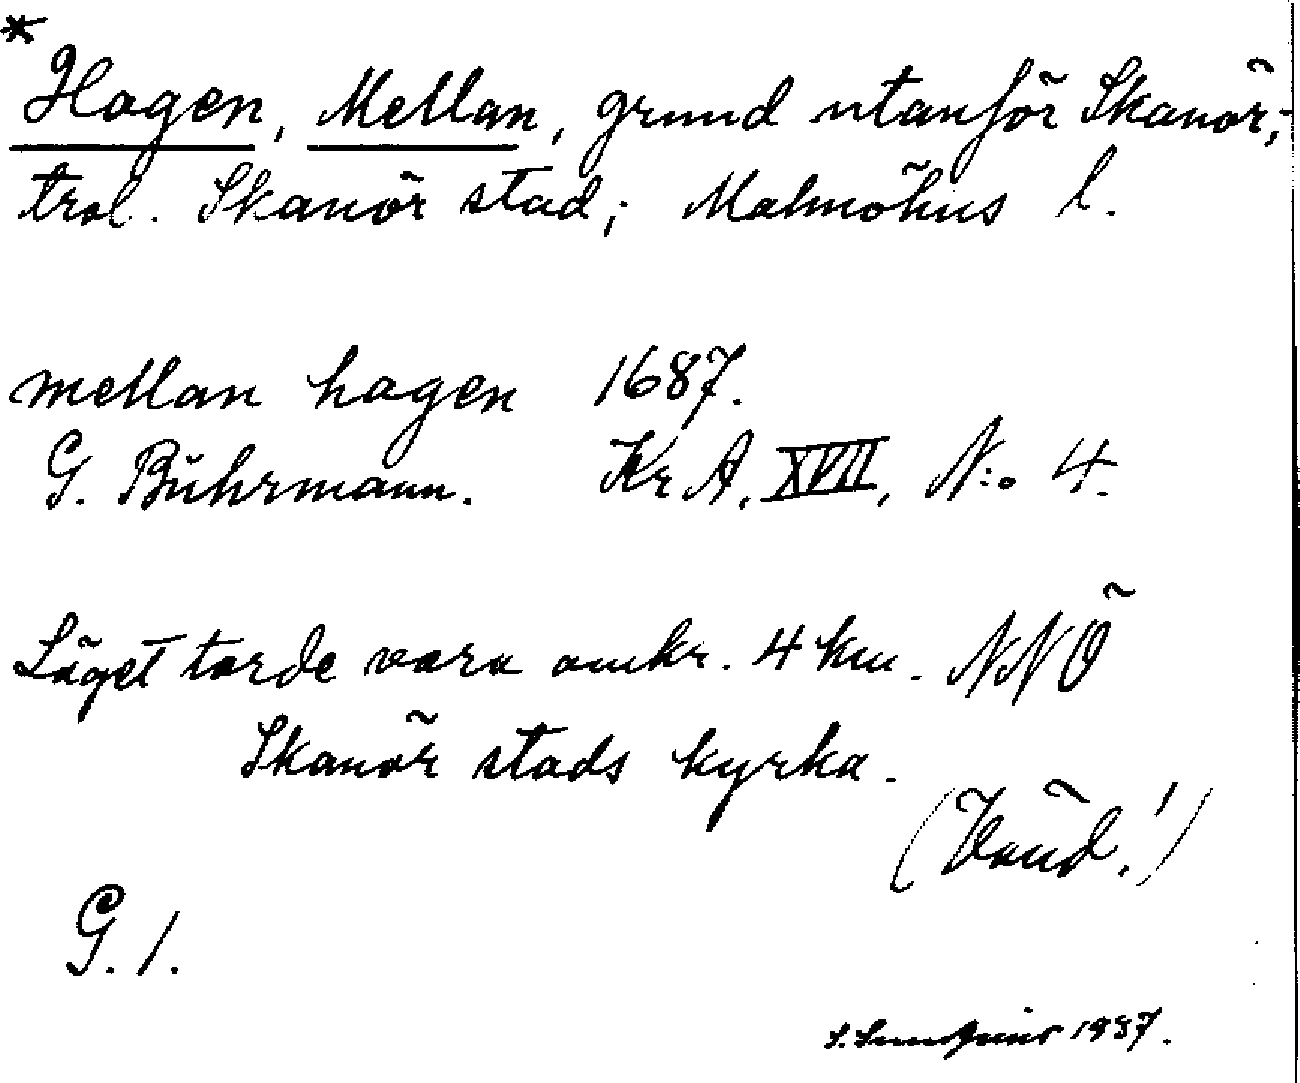 *
Hagen, Mellan, grund utanför Skanör;
trol. Skanör stad; Malmöhus l.
mellan hagen 1687.
G. Bührmann. Kr A, XVII, N:o 4.
Läget torde vara omkr. 4 km. NNÖ
Skanör stads kyrka.
(Vänd!)
G. 1.
S. 1937.